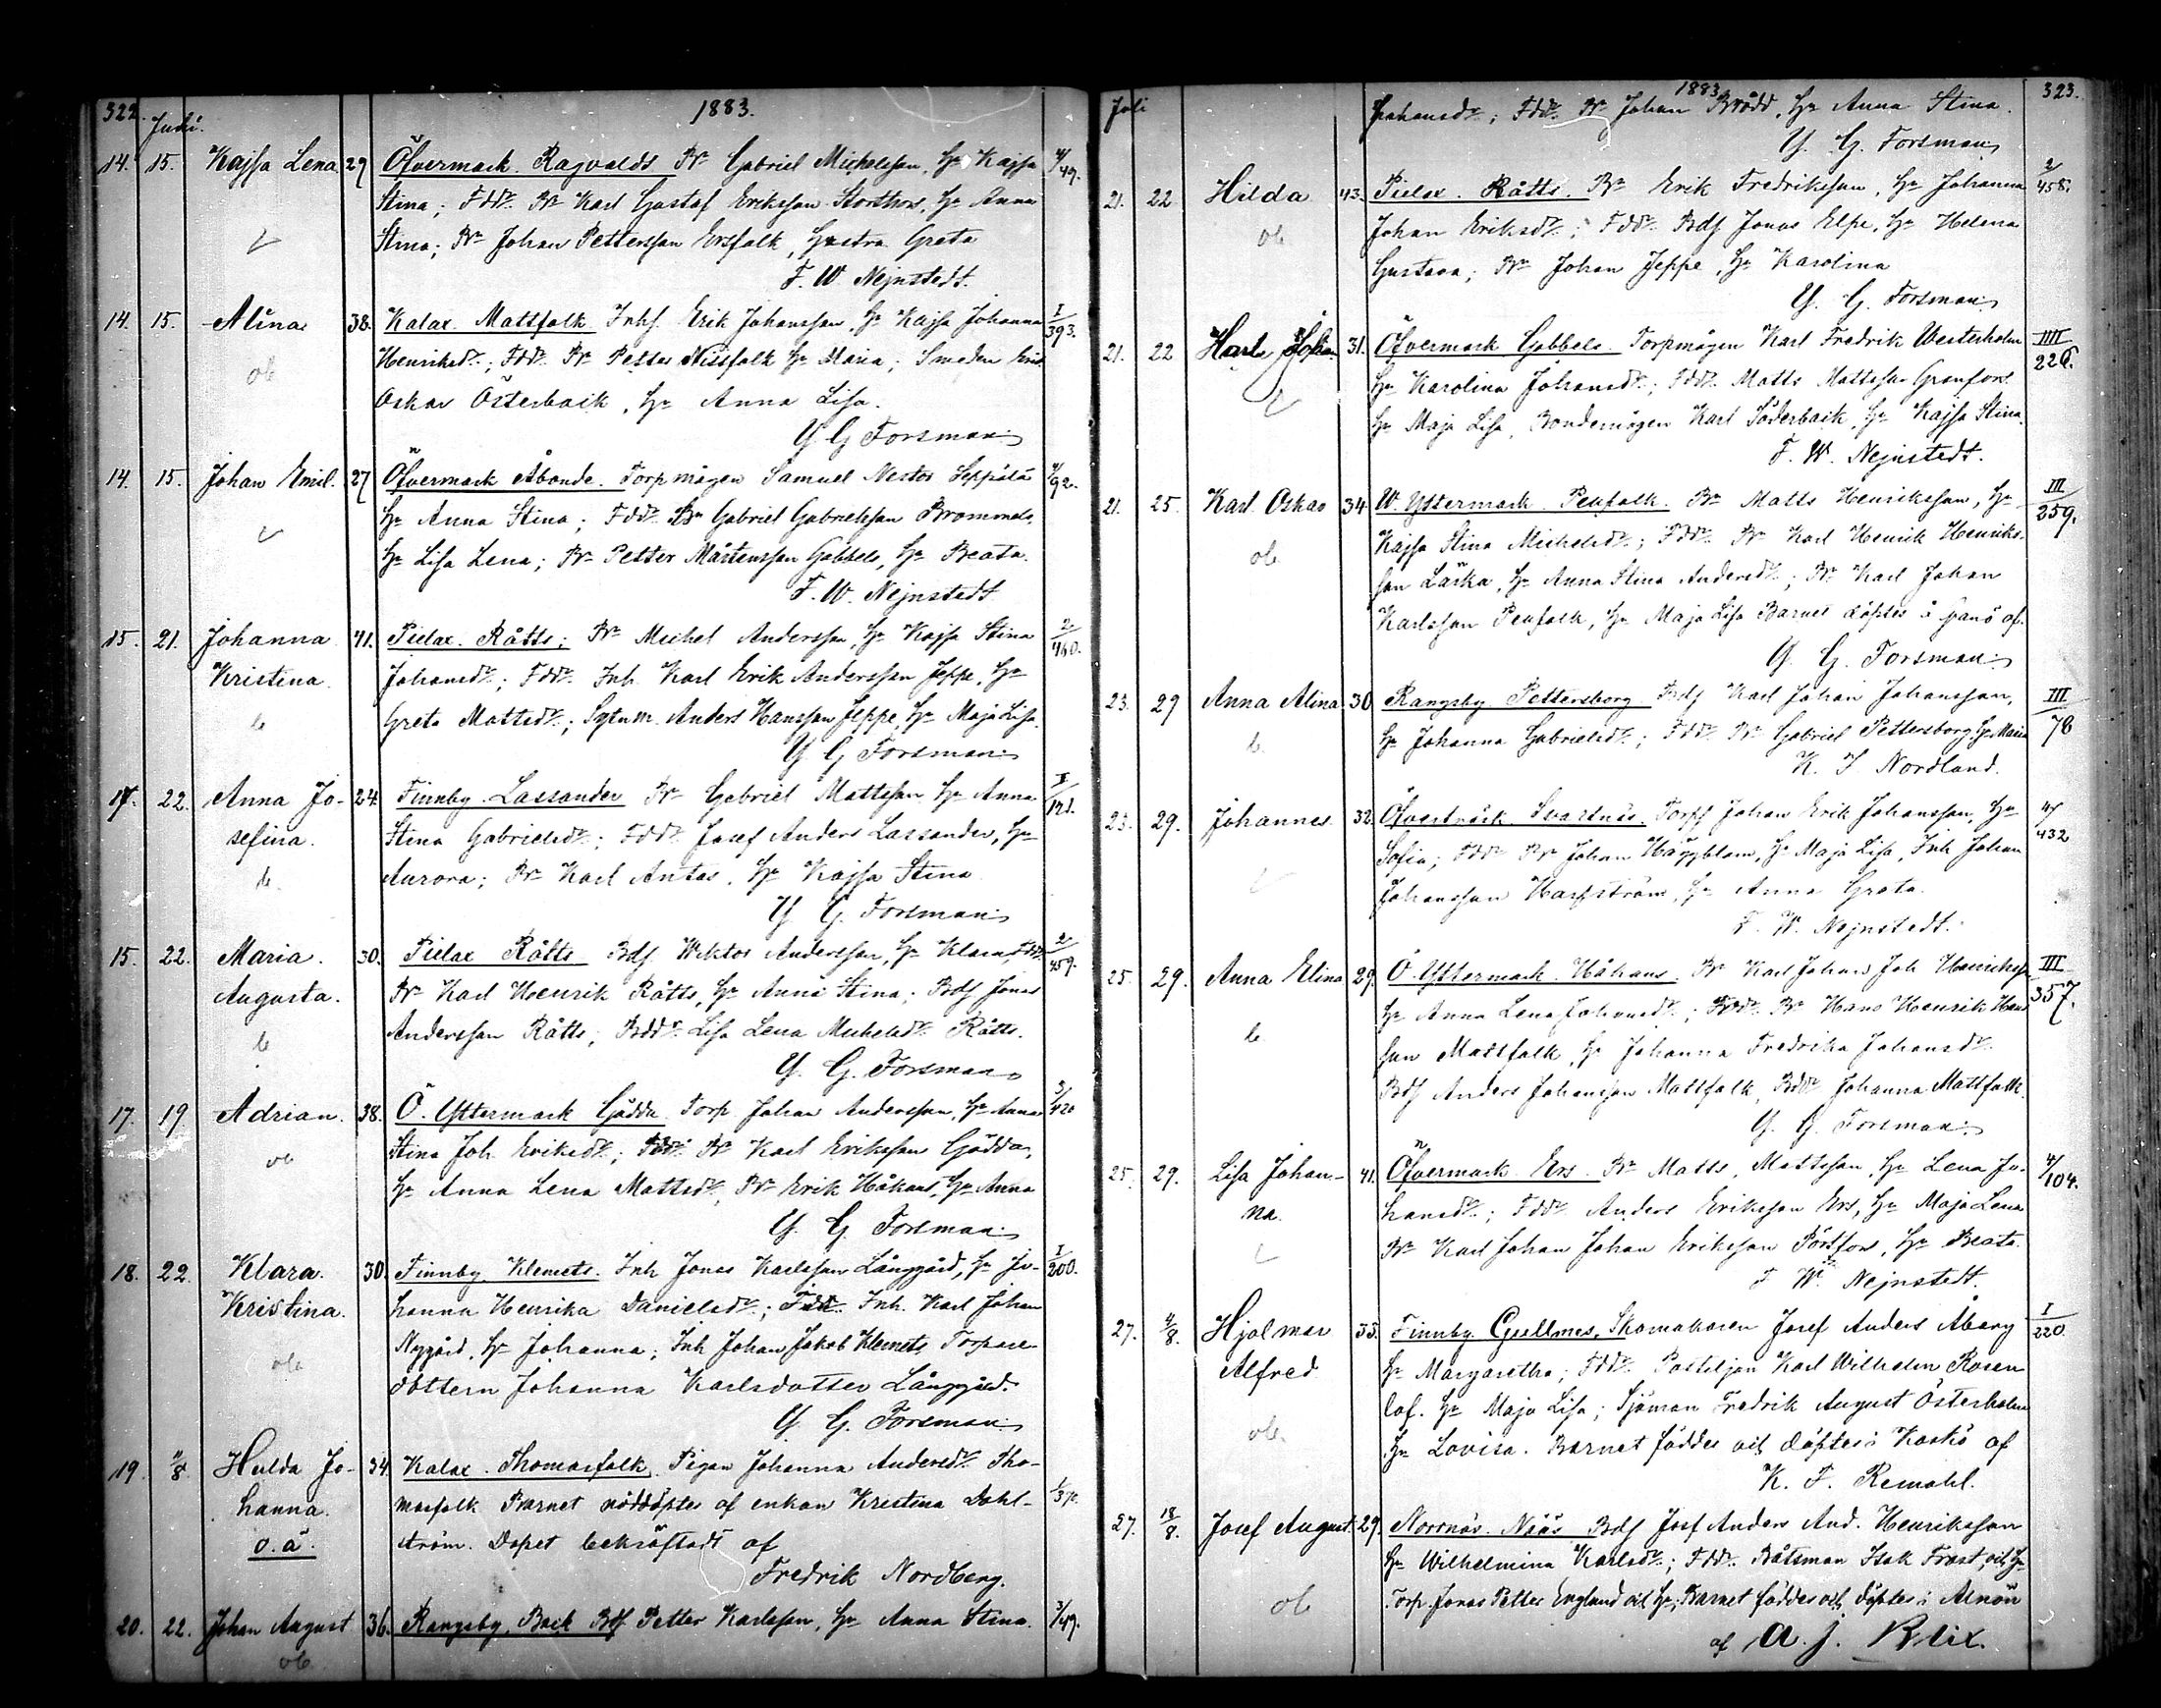 322.
Juli.
1883.
14. 15. Kajsa Lena 29 Öfvermark Ragvalds Bn Gabriel Michelsson, Hu Kajsa 4/49.
Stina; Fddr. Bn Karl Gustaf Eriksson Storthors, Hu Anna
Stina; Bn Johan Pettersson Ersfolk, Hustru Greta
F. W. Nejnstedt.
14. 15. Alina 38. Kalax Mattfolk Inhs. Erik Johansson, Hu Kajsa Johanna I/393.
ob Henriksdr.; Fddr. Bn Petter Nissfolk Hu Maria; Smeden
Oskar Österback, Hu Anna Lisa.
G Forsman
14. 15. Johan Emil. 27 Öfvermark Åbonde. Torpmågen Samuel Nestor Seppälä 4/92.
Hu Anna Stina; Fddr. Bn Gabriel Gabrielsson Brommels,
Hu Lisa Lena; Bn Petter Mårtensson Gabbels, Hu Beata.
F. W. Nejnstedt
15. 21. Johanna 41. Pielax. Råtts; Bn Michel Andersson, Hu Kajsa Stina 2/460.
Kristina. Johansdr.; Fddr. Inh. Karl Erik Andersson Jeppe, Hu
Greta Mattsdr.; Sytnm. Anders Hansson Jeppe, Hu Maja Lisa.
G Forsman
17. 22. Anna Jo- 24. Finnby. Lassander Bn Gabriel Mattsson Hu Anna I/121.
sefina. Stina Gabrielsdr.; Fddr. Josef Anders Lassander, Hu
Aurora; Bn Karl Antas. Hu Kajsa Stina
G. Forsman
15. 22. Maria. 30. Pielax Råtts Bds Wiktor Andersson, Hu Klara Fddr. 2/459.
Augusta. Bn Karl Henrik Råtts, Hu Anna Stina; Bds Jonas
Andersson Råtts; Bddr. Lisa Lena Michelsdr. Råtts.
G. Forsman
17. 19. Adrian. 38. Ö. Yttermark Gädda Torp Johan Andersson, Hu Anna 3/420
ob Stina Joh. Eriksdr.; Fddr. Bn Karl Eriksson Gädda,
Hu Anna Lena Mattsdr, Bn Erik Håkans, Hu Anna
G Forsman
18. 22. Klara. 30. Finnby Klemets. Inh Jonas Karlsson Långgård, Hu Jo- I/200.
Kristina. hanna Henrika Danielsdr.; Fddr. Inh. Karl Johan
ob Nygård, Hu Johanna; Inh Johan Jakob Klemets Torpare-
dottern Johanna Karlsdotter Långgård.
G Forsman
19. 4/8. Hulda Jo- 34. Kalax. Thomasfolk. Pigan Johanna Andersdr. Tho-
hanna. masfolk Barnet nöddöptes af enkan Kristina Dahl- 1/370.
o. ä. ström. Dopet bekräftadt af
Fredrik Nordberg.
20. 22. Johan August 36. Rangsby. Back Bds Petter Karlsson, Hu Anna Stina. 3/49.
ob
Juli
1883.
323.
Johansdr.; Fddr. Bn Johan Brådd, Hu Anna Stina.
G. Forsman
21. 22 Hilda 43. Pielax. Råtts. Bn Erik Fredriksson, Hu Johanna 2/458.
ob Johan Eriksdr.; Fddr. Bds Jonas Elpe, Hu Helena
Gustava; Bn Johan Jeppe, Hu Karolina
G. Forsman
21. 22 Karl Johan 31. Öfvermark Gabbels. Torpmågen Karl Fredrik Westerholm IIII/226.
Hu Karolina Johansdr.; Fddr. Matts Mattsson Granfors
Hu Maja Lisa, Bondemågen Karl Söderback, Hu Kajsa Stina.
F. W. Nejnstedt.
21. 25. Karl Oskar 34. W. Yttermark Penfolk. Bn Matts Henriksson, Hu III/259.
ob Kajsa Stina Michelsdr.; Fddr. Bn Karl Henrik Henriks-
son Laska, Hu Anna Stina Andersdr.; Bn Karl Johan
Karlsson Penfolk, Hu Maja Lisa Barnet döptes å Ganö af.
G. Forsman
23. 29 Anna Alina 30 Rangsby Pettersborg Bds Karl Johan Johansson, III/78
Hu Johanna Gabrielsdr.; Fddr Bn Gabriel Pettersborg, Hu Maria
K. J Nordlund.
23. 29. Johannes 32. Öfverträsk Svartnäs. Torps Johan Erik Johansson, Hu 4/432
Sofia; Fddr Bn Johan Häggblom, Hu Maja Lisa, Inh Johan
Johansson Harfström, Hu Anna Greta.
F. W. Nejnstedt.
25. 29. Anna Elina 29. Ö. Yttermark. Håkans. Bn Karl Johan Joh Henriksson III/357.
Hu Anna Lena Johansdr.; Fddr. Bn Hans Henrik Hans
son Mattfolk, Hu Johanna Fredrika Johansdr.
Bds Anders Johansson Mattfolk, Bddr Johanna Mattfolk.
G. Forsman
25. 29. Lisa Johan- 41. Öfvermark Ers. Bn Matts. Mattsson, Hu Lena Jo- 4/104.
na. hansdr.; Fddr Anders Eriksson Ers, Hu Maja Lena
Bn Karl Johan Johan Eriksson Pörtfors, Hu Beata.
F W. Nejnstedt.
27. 4/8. Hjalmar 33. Finnby. Gullmes. Skomakaren Josef Anders Åberg I/220.
Alfred Hu Margaretha; Fddr. Postiljon Karl Wilhelm Rosen
ob. löf. Hu Maja Lisa; Sjöman Fredrik August Österholm
Hu Lovisa. Barnet föddes och döptes i Kaskö af
K. F. Remahl.
27. 18/8. Josef August 29. Norrnäs. Näs Bds Josf Anders And. Henriksson
Hu Wilhelmina Karlsdr.; Fddr. Båtsman Isak Frost, och Hu
ob Torp. Jonas Petter Englund och Hu; Barnet föddes och döptes i Alnön
af A. J. Blix.